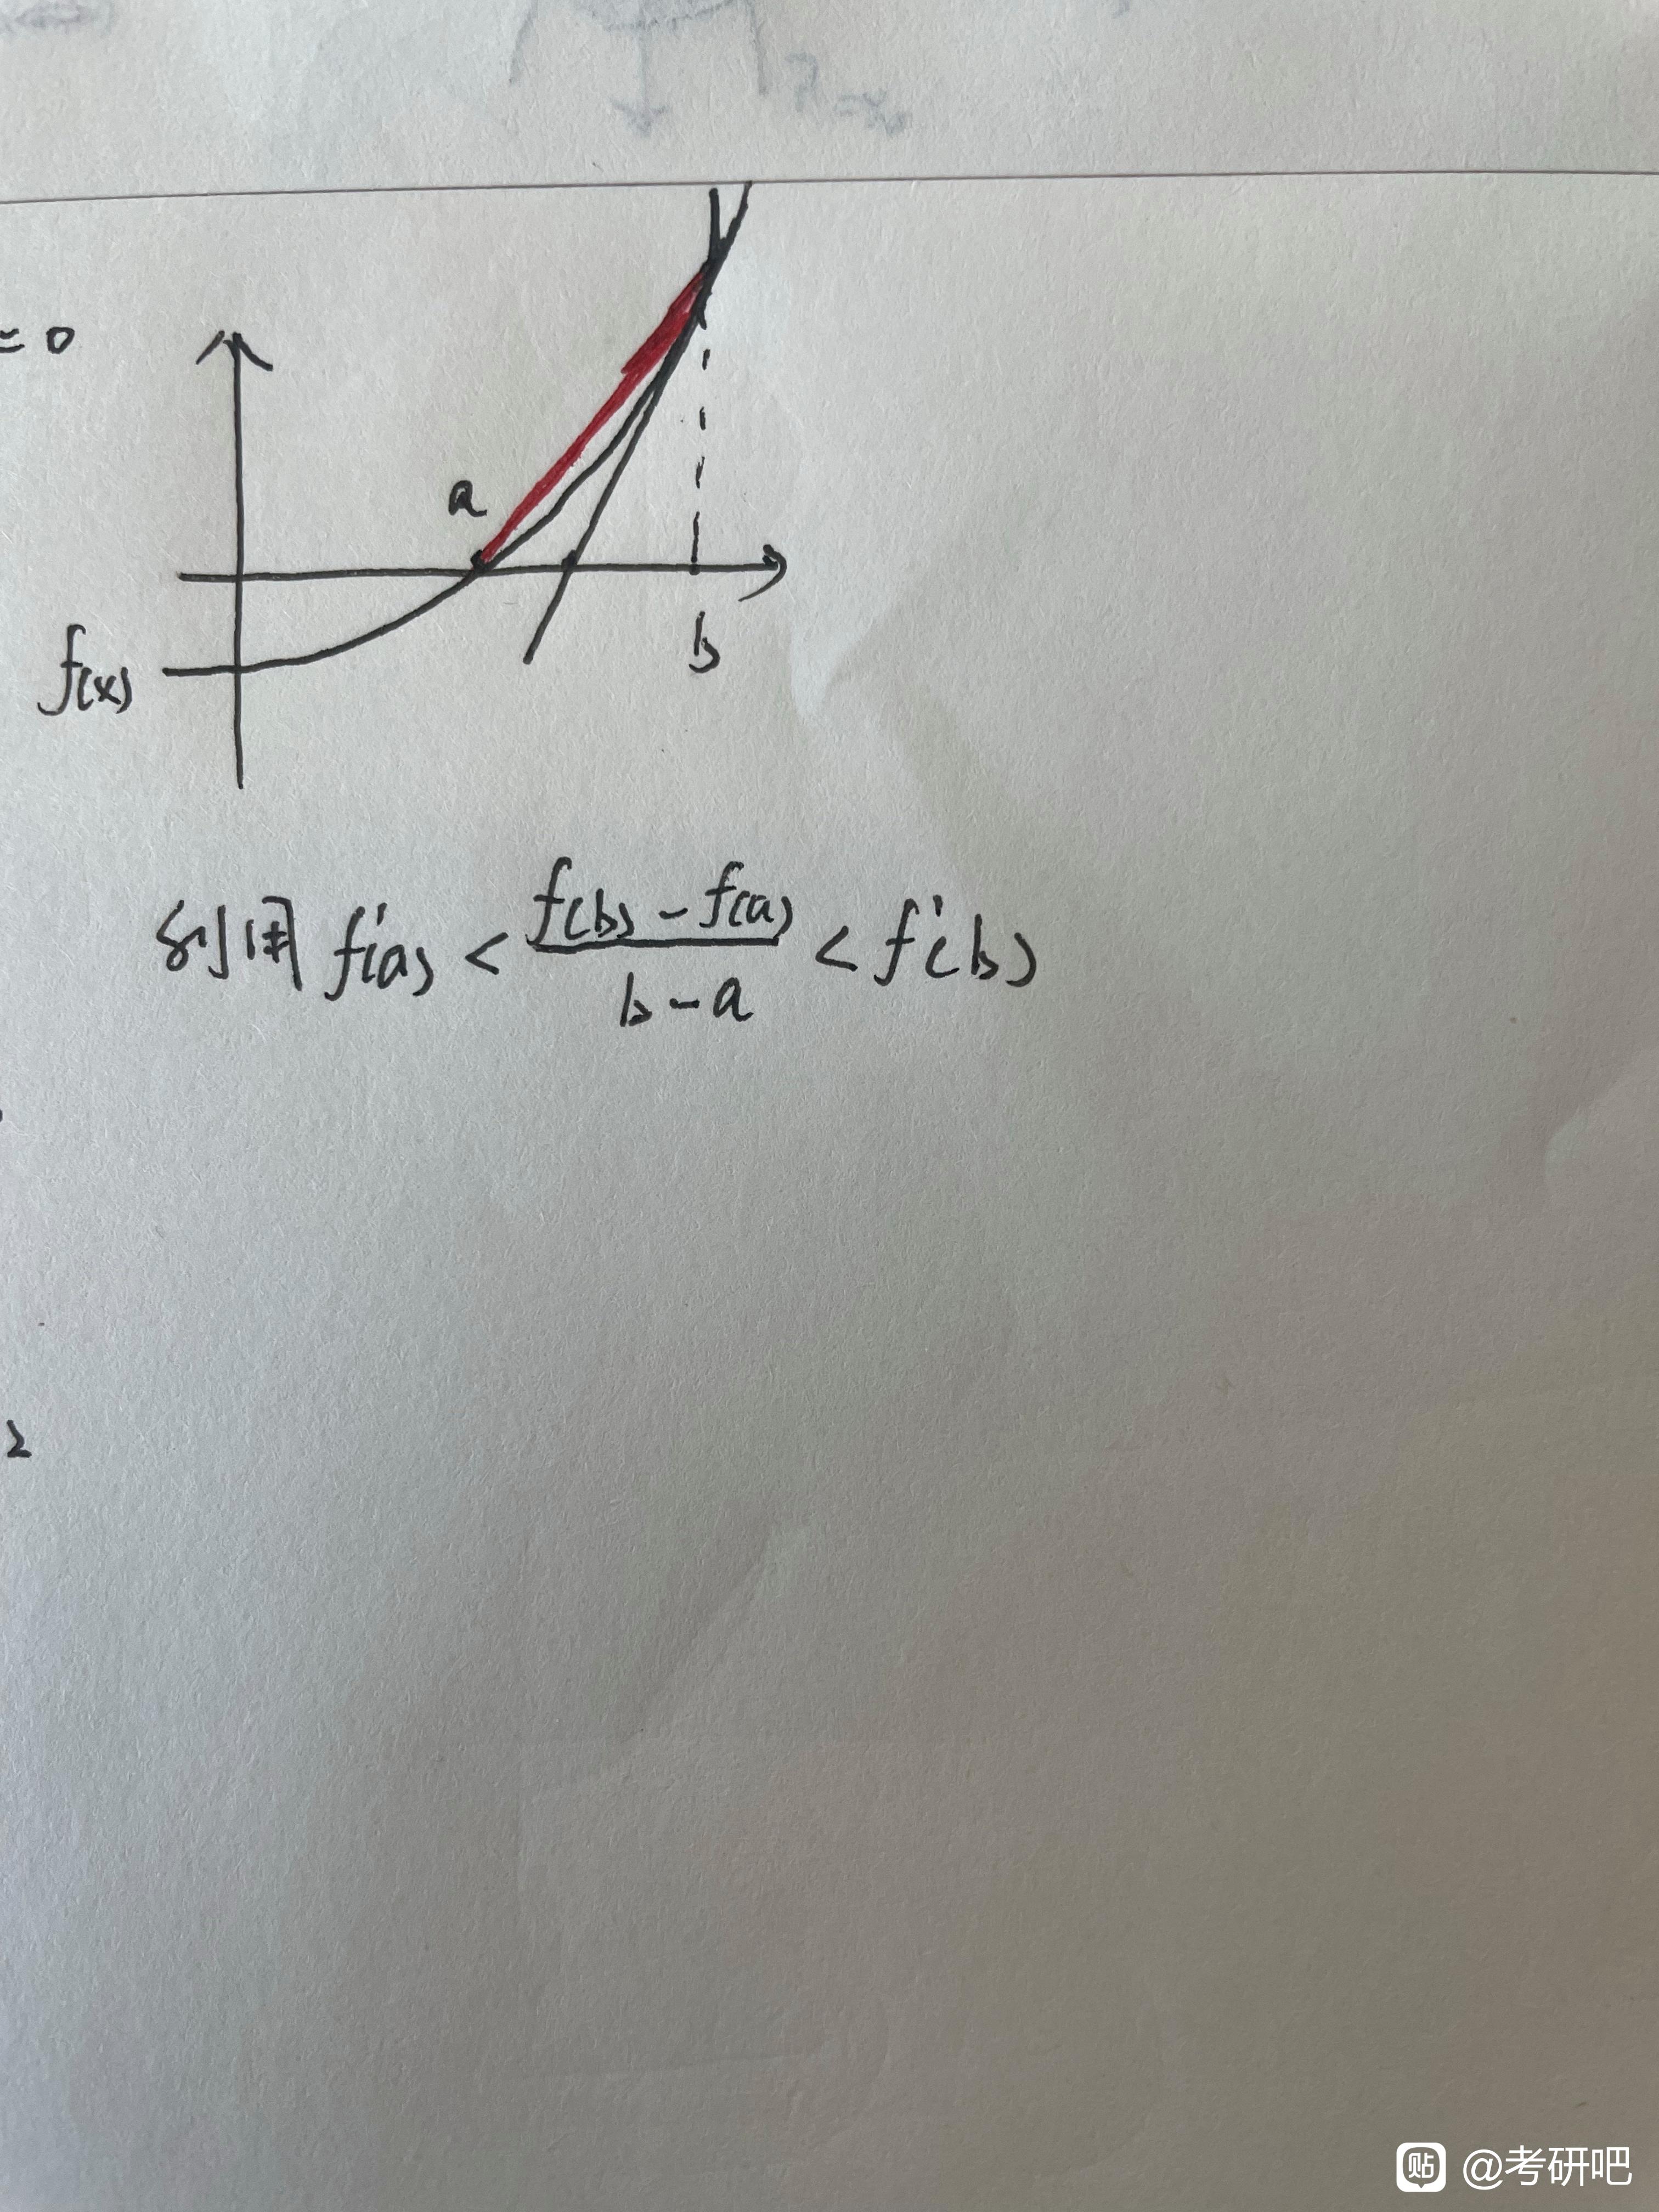 = 0
a
b
f(x)
利用 f'(a) < \frac{f(b) - f(a)}{b - a} < f'(b)
2
贴 @考研吧